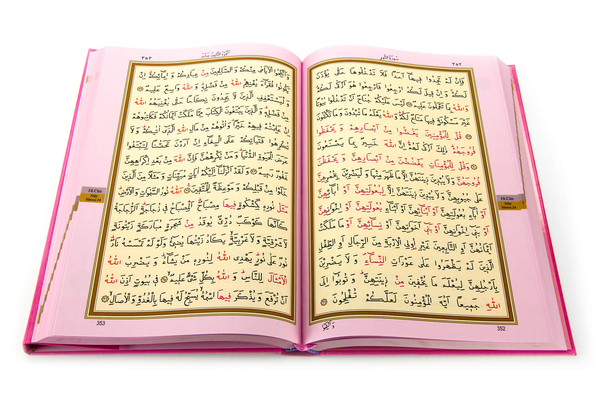 ٣٥٢
سُورَةُ النُّورِ
فَاِنْ لَمْ تَجِدُوا فِيهَا اَحَدًا فَلَا تَدْخُلُوهَا حَتّٰى يُؤْذَنَ
لَكُمْ وَاِنْ قِيلَ لَكُمُ ارْجِعُوا فَارْجِعُوا هُوَ اَزْكٰى لَكُمْ
وَاللّٰهُ بِمَا تَعْمَلُونَ عَلِيمٌ لَيْسَ عَلَيْكُمْ جُنَاحٌ اَنْ تَدْخُلُوا بُيُوتًا
غَيْرَ مَسْكُونَةٍ فِيهَا مَتَاعٌ لَكُمْ وَاللّٰهُ يَعْلَمُ مَا تُبْدُونَ وَمَا تَكْتُمُونَ
قُلْ لِلْمُؤْمِنِينَ يَغُضُّوا مِنْ اَبْصَارِهِمْ وَيَحْفَظُوا
فُرُوجَهُمْ ذٰلِكَ اَزْكٰى لَهُمْ اِنَّ اللّٰهَ خَبِيرٌ بِمَا يَصْنَعُونَ
وَقُلْ لِلْمُؤْمِنَاتِ يَغْضُضْنَ مِنْ اَبْصَارِهِنَّ وَيَحْفَظْنَ
فُرُوجَهُنَّ وَلَا يُبْدِينَ زِينَتَهُنَّ اِلَّا مَا ظَهَرَ مِنْهَا وَلْيَضْرِبْنَ بِخُمُرِهِنَّ
عَلٰى جُيُوبِهِنَّ وَلَا يُبْدِينَ زِينَتَهُنَّ اِلَّا لِبُعُولَتِهِنَّ اَوْ اٰبَائِهِنَّ
اَوْ اٰبَاءِ بُعُولَتِهِنَّ اَوْ اَبْنَائِهِنَّ اَوْ اَبْنَاءِ بُعُولَتِهِنَّ اَوْ اِخْوَانِهِنَّ
اَوْ بَنِي اِخْوَانِهِنَّ اَوْ بَنِي اَخَوَاتِهِنَّ اَوْ نِسَائِهِنَّ اَوْ مَا مَلَكَتْ
اَيْمَانُهُنَّ اَوِ التَّابِعِينَ غَيْرِ اُولِي الْاِرْبَةِ مِنَ الرِّجَالِ اَوِ الطِّفْلِ
الَّذِينَ لَمْ يَظْهَرُوا عَلٰى عَوْرَاتِ النِّسَاءِ وَلَا يَضْرِبْنَ
بِاَرْجُلِهِنَّ لِيُعْلَمَ مَا يُخْفِينَ مِنْ زِينَتِهِنَّ وَتُوبُوا اِلَى
اللّٰهِ جَمِيعًا اَيُّهَ الْمُؤْمِنُونَ لَعَلَّكُمْ تُفْلِحُونَ
352
٣٥٣
وَاَنْكِحُوا الْاَيَامٰى مِنْكُمْ وَالصَّالِحِينَ مِنْ عِبَادِكُمْ وَاِمَائِكُمْ اِنْ
يَكُونُوا فُقَرَاءَ يُغْنِهِمُ اللّٰهُ مِنْ فَضْلِهِ وَاللّٰهُ وَاسِعٌ عَلِيمٌ
وَلْيَسْتَعْفِفِ الَّذِينَ لَا يَجِدُونَ نِكَاحًا حَتّٰى يُغْنِيَهُمُ اللّٰهُ
مِنْ فَضْلِهِ وَالَّذِينَ يَبْتَغُونَ الْكِتَابَ مِمَّا مَلَكَتْ اَيْمَانُكُمْ فَكَاتِبُوهُمْ
اِنْ عَلِمْتُمْ فِيهِمْ خَيْرًا وَاٰتُوهُمْ مِنْ مَالِ اللّٰهِ الَّذِي اٰتٰيكُمْ وَلَا
تُكْرِهُوا فَتَيَاتِكُمْ عَلَى الْبِغَاءِ اِنْ اَرَدْنَ تَحَصُّنًا لِتَبْتَغُوا
عَرَضَ الْحَيٰوةِ الدُّنْيَا وَمَنْ يُكْرِهْهُنَّ فَاِنَّ اللّٰهَ مِنْ بَعْدِ اِكْرَاهِهِنَّ
غَفُورٌ رَحِيمٌ وَلَقَدْ اَنْزَلْنَا اِلَيْكُمْ اٰيَاتٍ مُبَيِّنَاتٍ وَمَثَلًا مِنَ الَّذِينَ
خَلَوْا مِنْ قَبْلِكُمْ وَمَوْعِظَةً لِلْمُتَّقِينَ اَللّٰهُ نُورُ السَّمٰوَاتِ وَالْاَرْضِ
مَثَلُ نُورِهِ كَمِشْكٰوةٍ فِيهَا مِصْبَاحٌ اَلْمِصْبَاحُ فِي زُجَاجَةٍ اَلزُّجَاجَةُ
كَاَنَّهَا كَوْكَبٌ دُرِّيٌّ يُوقَدُ مِنْ شَجَرَةٍ مُبَارَكَةٍ زَيْتُونَةٍ
لَا شَرْقِيَّةٍ وَلَا غَرْبِيَّةٍ يَكَادُ زَيْتُهَا يُضِيءُ وَلَوْ لَمْ تَمْسَسْهُ نَارٌ
نُورٌ عَلٰى نُورٍ يَهْدِي اللّٰهُ لِنُورِهِ مَنْ يَشَاءُ وَيَضْرِبُ اللّٰهُ
الْاَمْثَالَ لِلنَّاسِ وَاللّٰهُ بِكُلِّ شَيْءٍ عَلِيمٌ فِي بُيُوتٍ اَذِنَ اللّٰهُ
اَنْ تُرْفَعَ وَيُذْكَرَ فِيهَا اسْمُهُ يُسَبِّحُ لَهُ فِيهَا بِالْغُدُوِّ وَالْاٰصَالِ
353